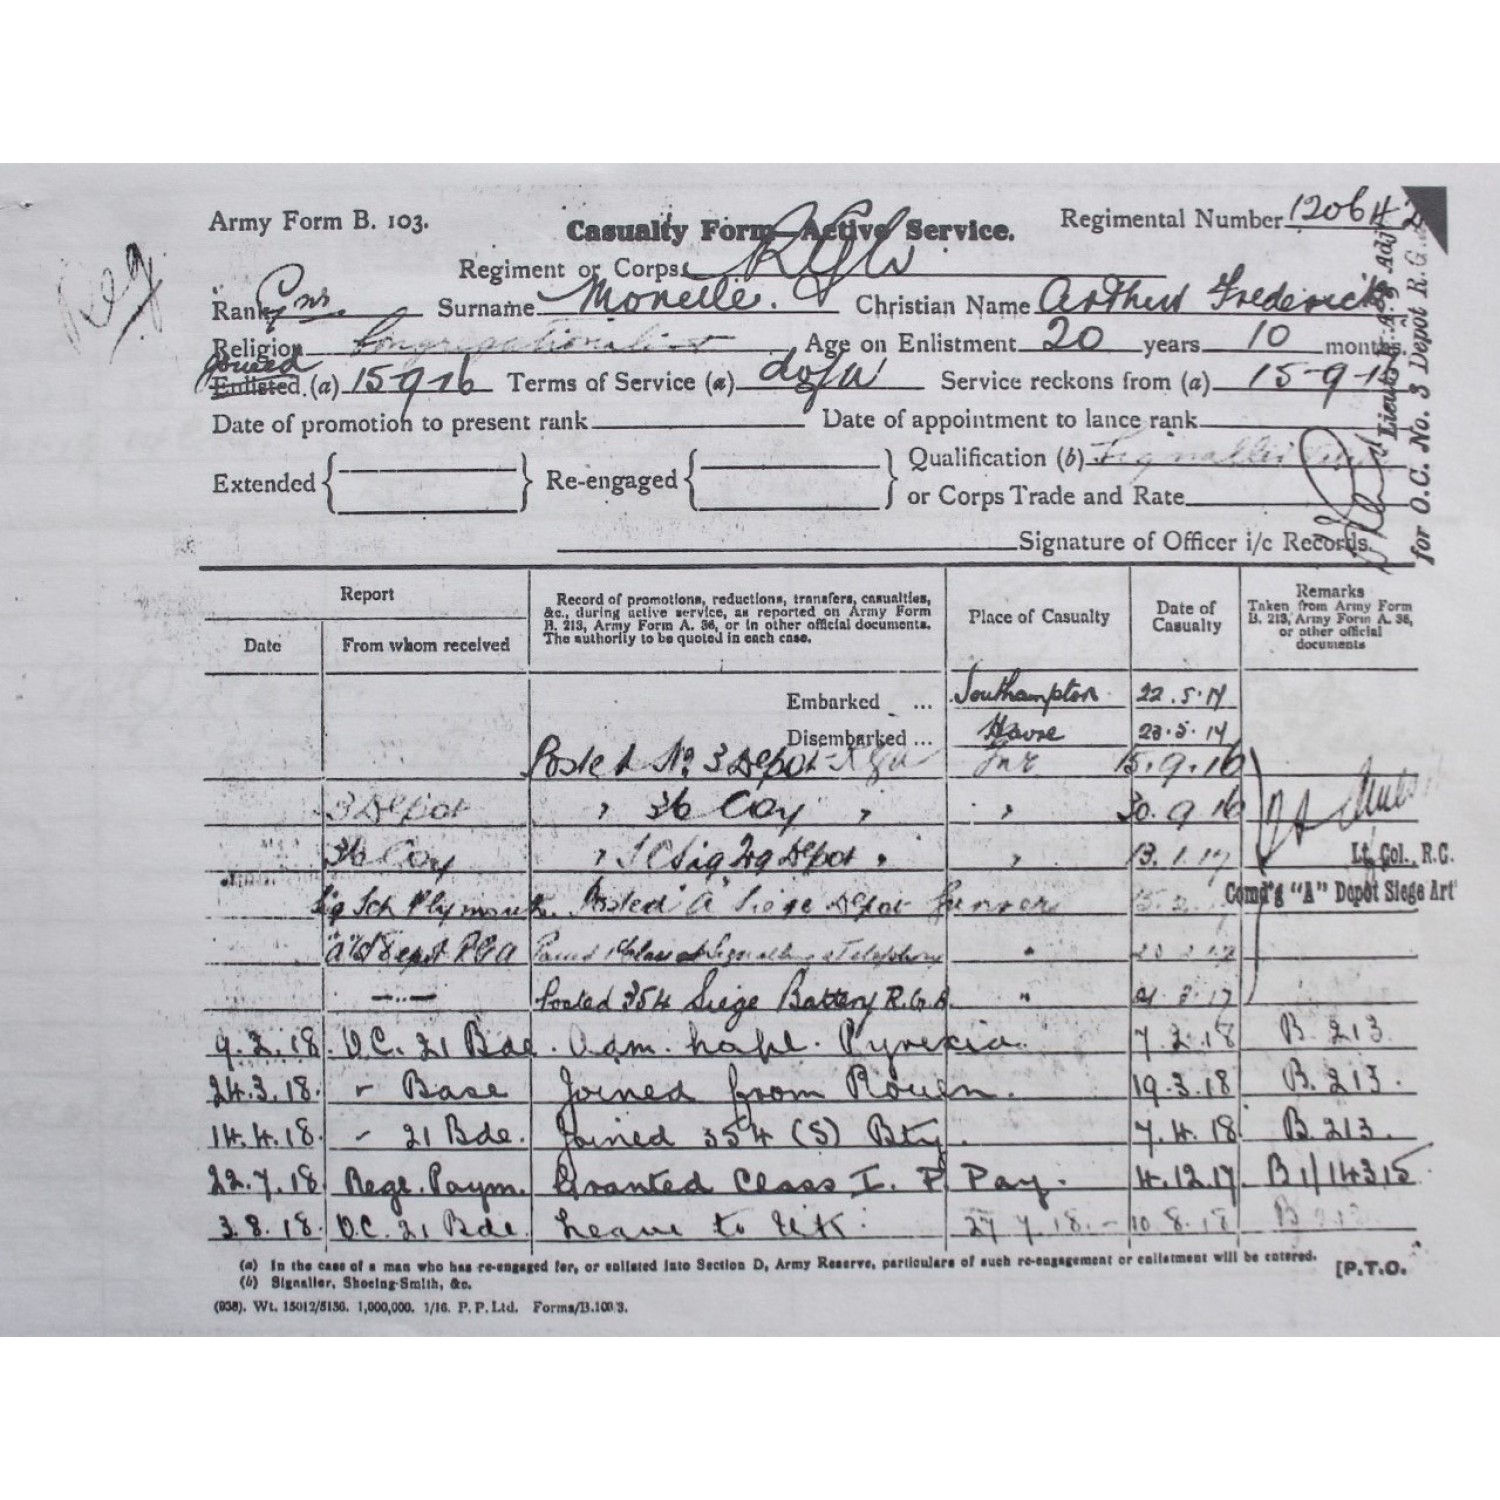 Army Form B. 103.
Casualty Form—Active Service.
Regimental Number 120642
Reg
Regiment or Corps RGA
Rank Gnr. Surname Monelle. Christian Name Arthur Frederick
Religion Congregationalist Age on Enlistment 20 years 10 months.
Joined
Enlisted (a) 15-9-16 Terms of Service (a) dofw Service reckons from (a) 15-9-16
Date of promotion to present rank Date of appointment to lance rank
Extended Re-engaged Qualification (b) Signaller
or Corps Trade and Rate
Signature of Officer i/c Records.
Lieut. & A. Adjt
for O.C. No. 3 Depot R.G.A.
Report
Date From whom received
Record of promotions, reductions, transfers, casualties, &c., during active service, as reported on Army Form B. 213, Army Form A. 36, or in other official documents. The authority to be quoted in each case.
Place of Casualty
Date of Casualty
Remarks
Taken from Army Form B. 213, Army Form A. 36, or other official documents
Embarked ... Southampton 22.5.17
Disembarked ... Havre 23.5.17
Posted No 3 Depot RGA Gnr 15.9.16
3 Depot " 36 Coy " " 30.9.16
36 Coy " Sig Depot " " 13.1.17
Lt. Col., R.G.
Sig Sch Plymouth. Posted "A" Siege Depot Gunner
Comd'g "A" Depot Siege Art
"A" Depot RGA Passed 1st Class at Signalling & Telephony "
—"— Posted 354 Siege Battery R.G.A. " 21.3.17
9.2.18 O.C. 21 Bde. Adm. hospl. Pyrexia. 7.2.18 B. 213.
24.3.18. " Base Joined from Rouen. 19.3.18 B. 213.
14.4.18. " 21 Bde. Joined 354 (S) Bty. 7.4.18 B. 213.
22.7.18 Regl. Paym. Granted Class I. P. Pay. 4.12.17 B1/14315
3.8.18. O.C. 21 Bde. Leave to UK. 27.7.18.- 10.8.18 B 213
(a) In the case of a man who has re-engaged for, or enlisted into Section D, Army Reserve, particulars of such re-engagement or enlistment will be entered.
[P.T.O.
(b) Signaller, Shoeing-Smith, &c.
(938). Wt. 15012/5156. 1,000,000. 1/16. P. P. Ltd. Forms/B.103/3.